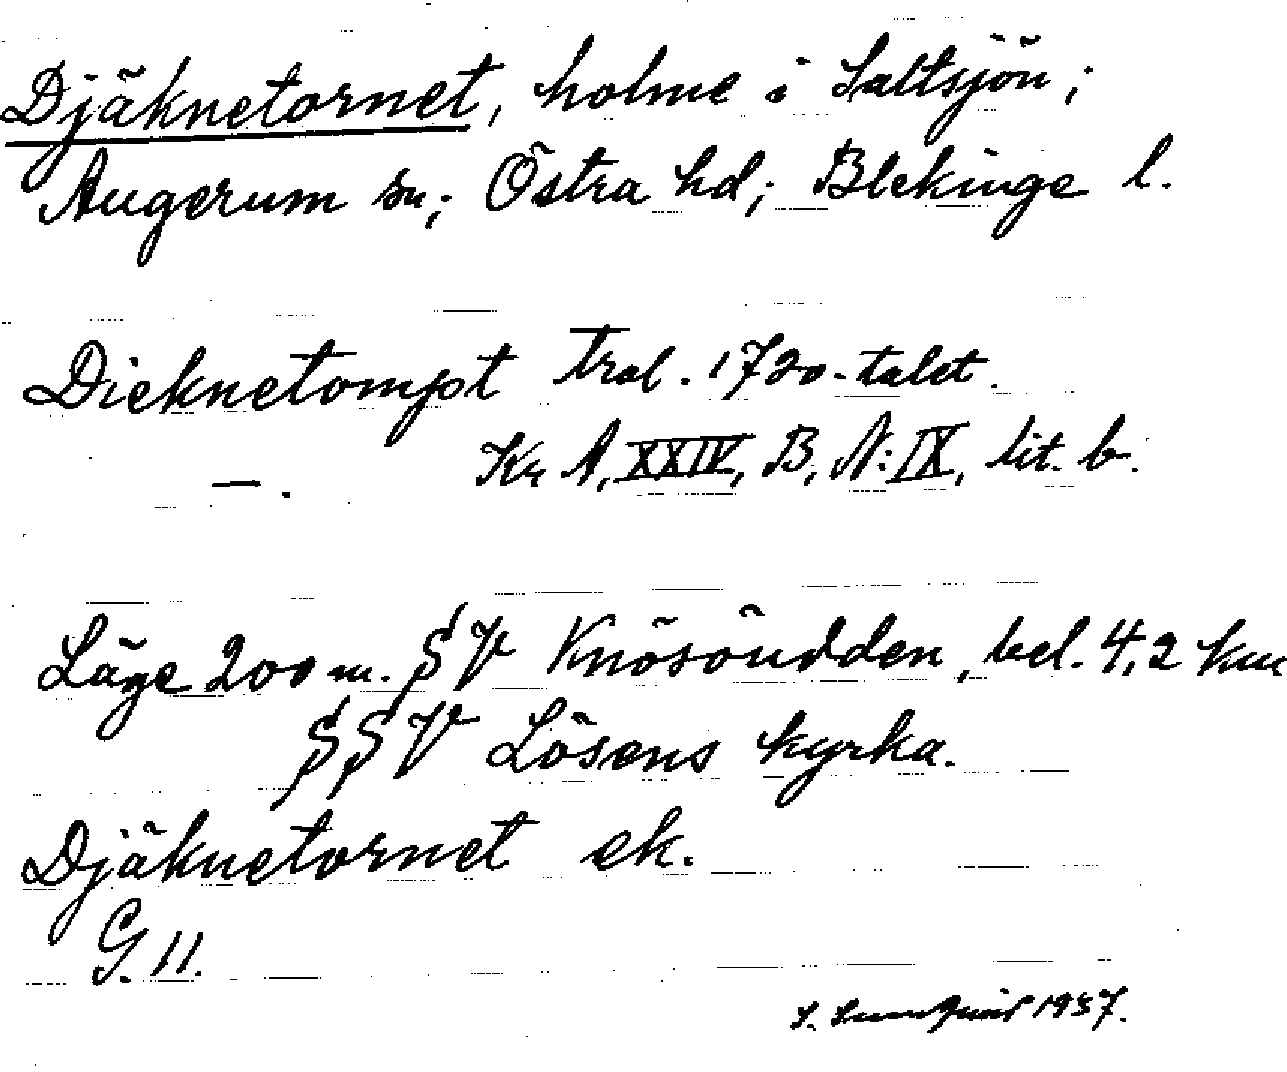 Djäknetornet, holme i Saltsjön;
Augerum sn; Östra hd; Blekinge l.
Dieknetompt trol. 1720-talet.
—. Kr A, XXIV, B, N: IX, lit. b.
Läge 200 m. SV Knösöudden, bel. 4,2 km
SSV Lösens kyrka.
Djäknetornet ek.
G. 11.
1937.